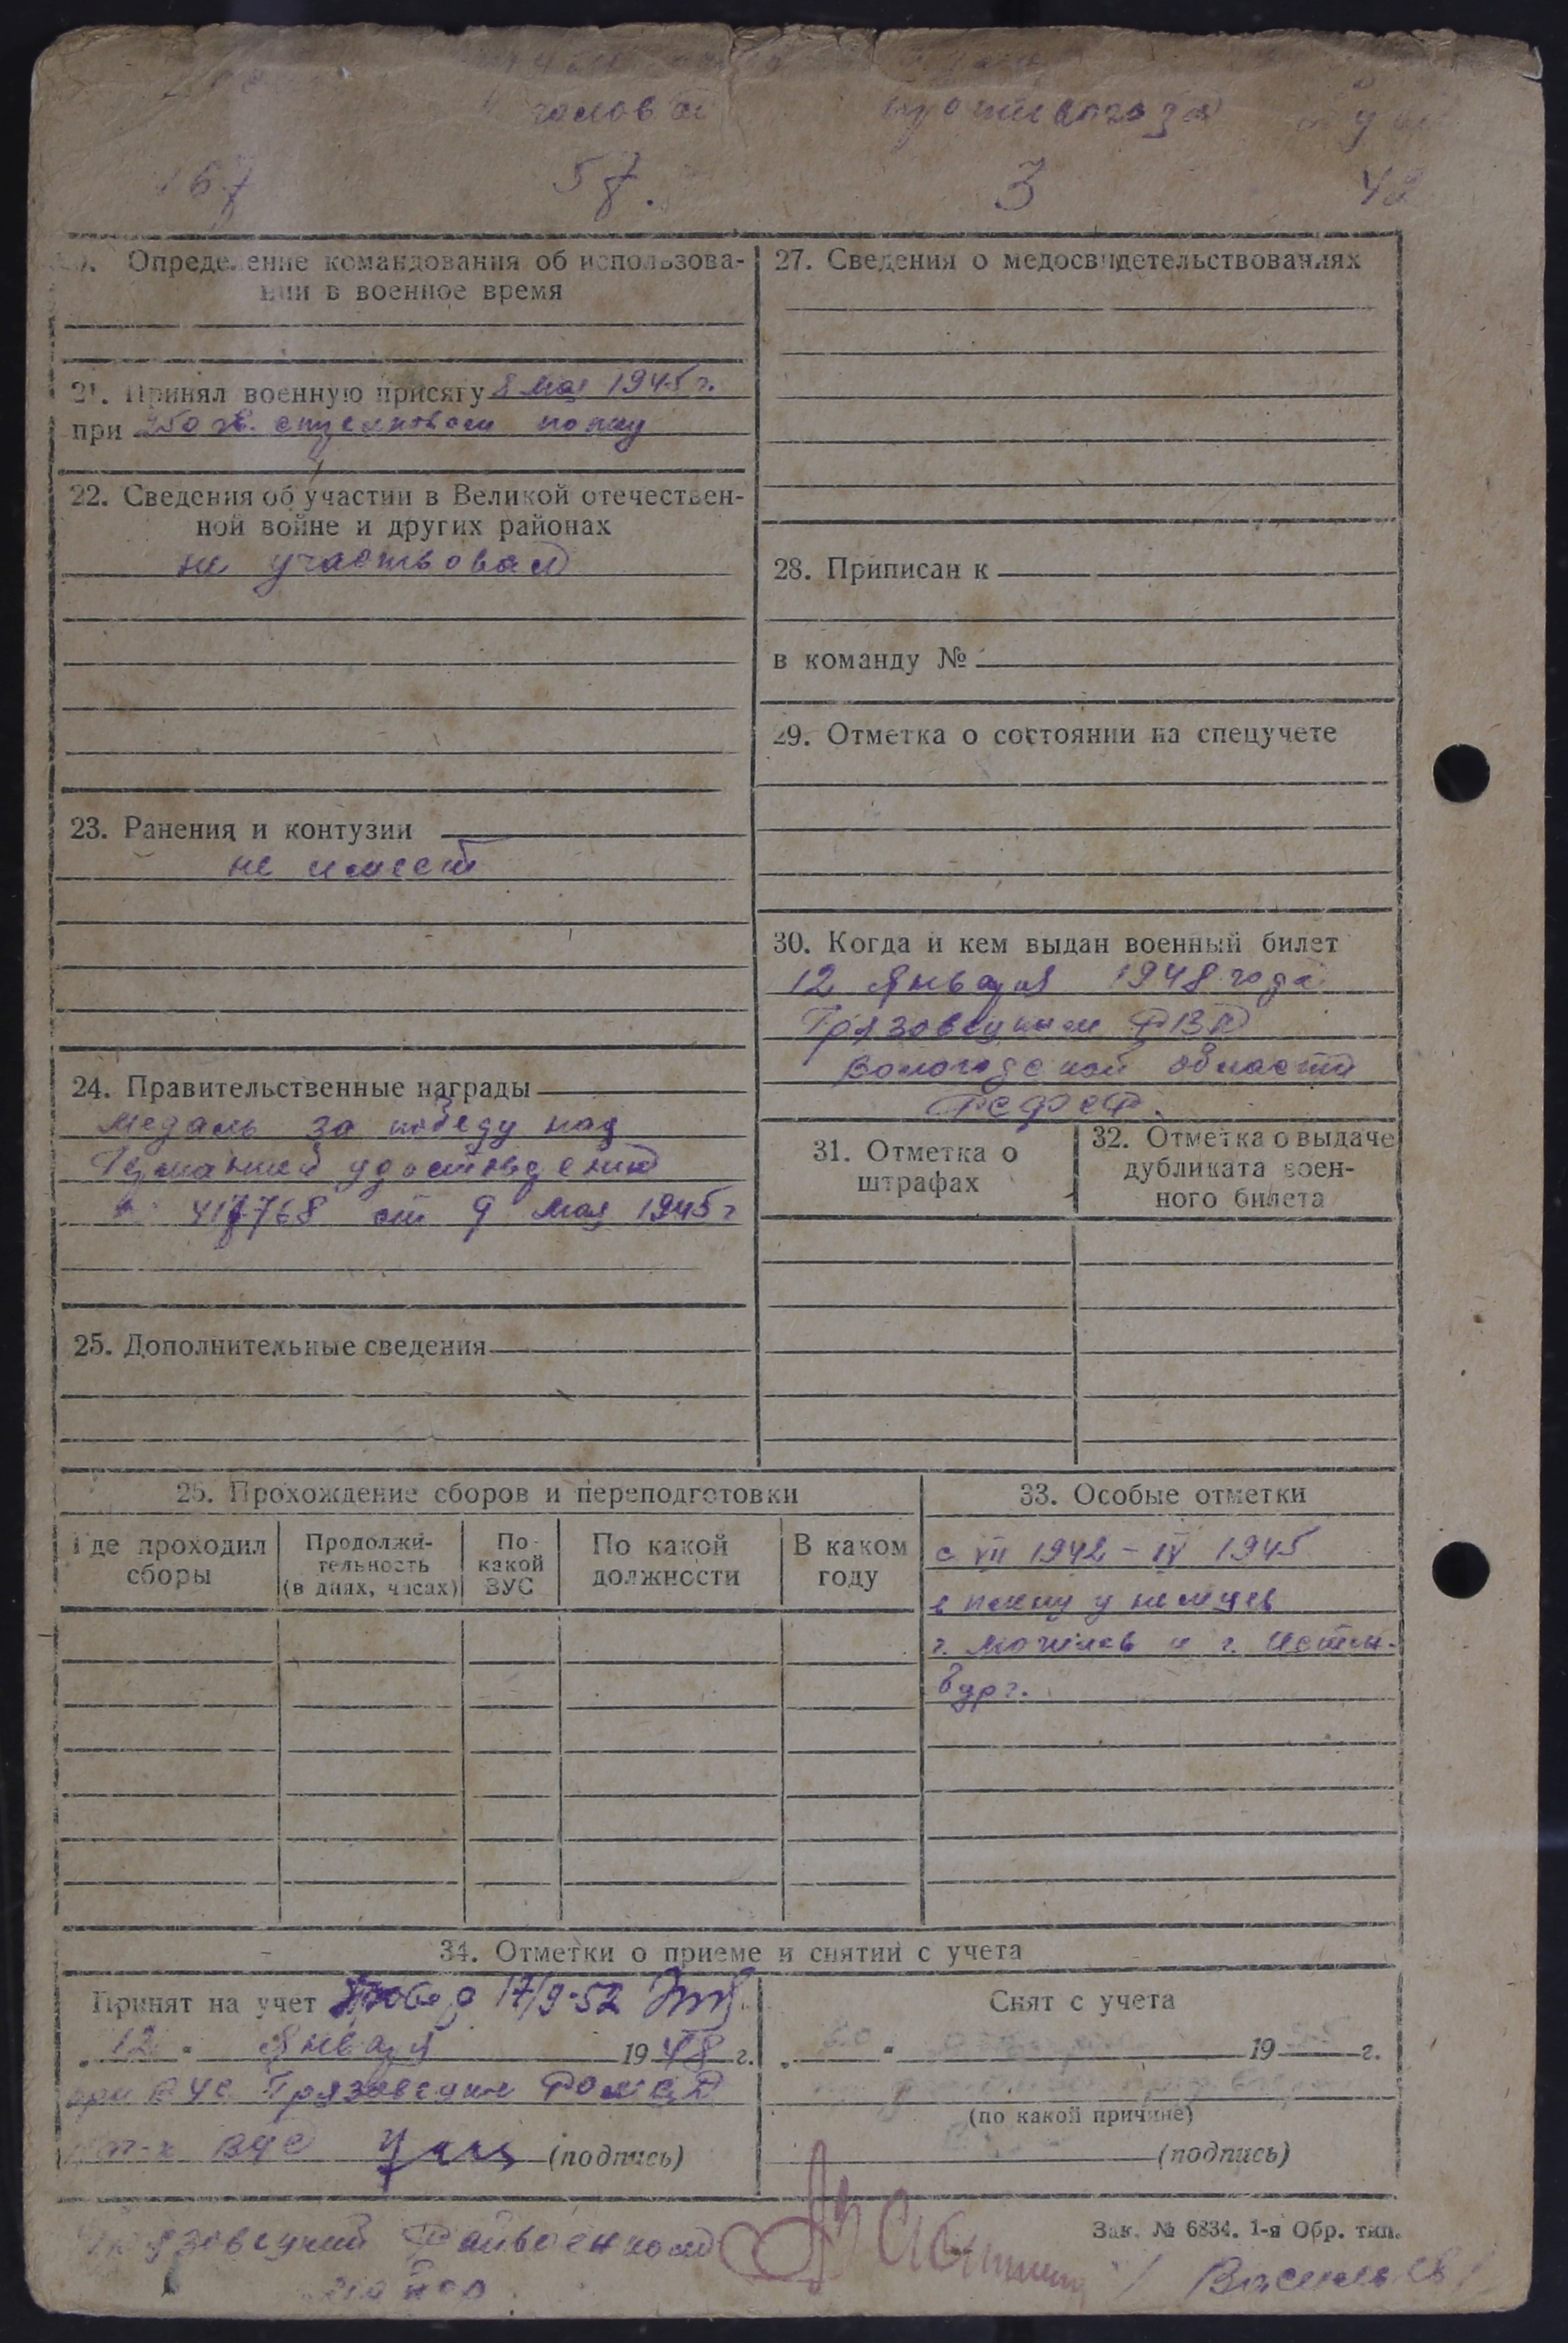 головы противогаза
167 57. 3 42
Определение командования об использова-
нии в военное время
21. Принял военную присягу 8 мая 1945 г.
при 250 зв. стрелковом полку
22. Сведения об участии в Великой отечествен-
ной войне и других районах
не участвовал
23. Ранения и контузии
не имеет
24. Правительственные награды
Медаль за победу над
Германией удостоверение
417768 от 9 мая 1945 г
25. Дополнительные сведения
27. Сведения о медосвидетельствованиях
28. Приписан к
в команду №
29. Отметка о состоянии на спецучете
30. Когда и кем выдан военный билет
12 января 1948 года
Грязовецким РВК
Вологодской области
РСФСР.
31. Отметка о
штрафах
32. Отметка о выдаче
дубликата воен-
ного билета
25. Прохождение сборов и переподготовки
Где проходил
сборы
Продолжи-
тельность
(в днях, часах)
По
какой
ВУС
По какой
должности
В каком
году
33. Особые отметки
с VII 1942 – IV 1945
в плену у немцев
г. Могилев и г. Истен-
бург.
34. Отметки о приеме и снятии с учета
Принят на учет 17/9-52
„12" января 1948 г.
при ВУС Грязовецкое
ВУС (подпись)
Снят с учета
19 г.
(по какой причине)
(подпись)
Зак. № 6834. 1-я Обр. тип.
Грязовецкий Райвоенком
майор / Васильев /